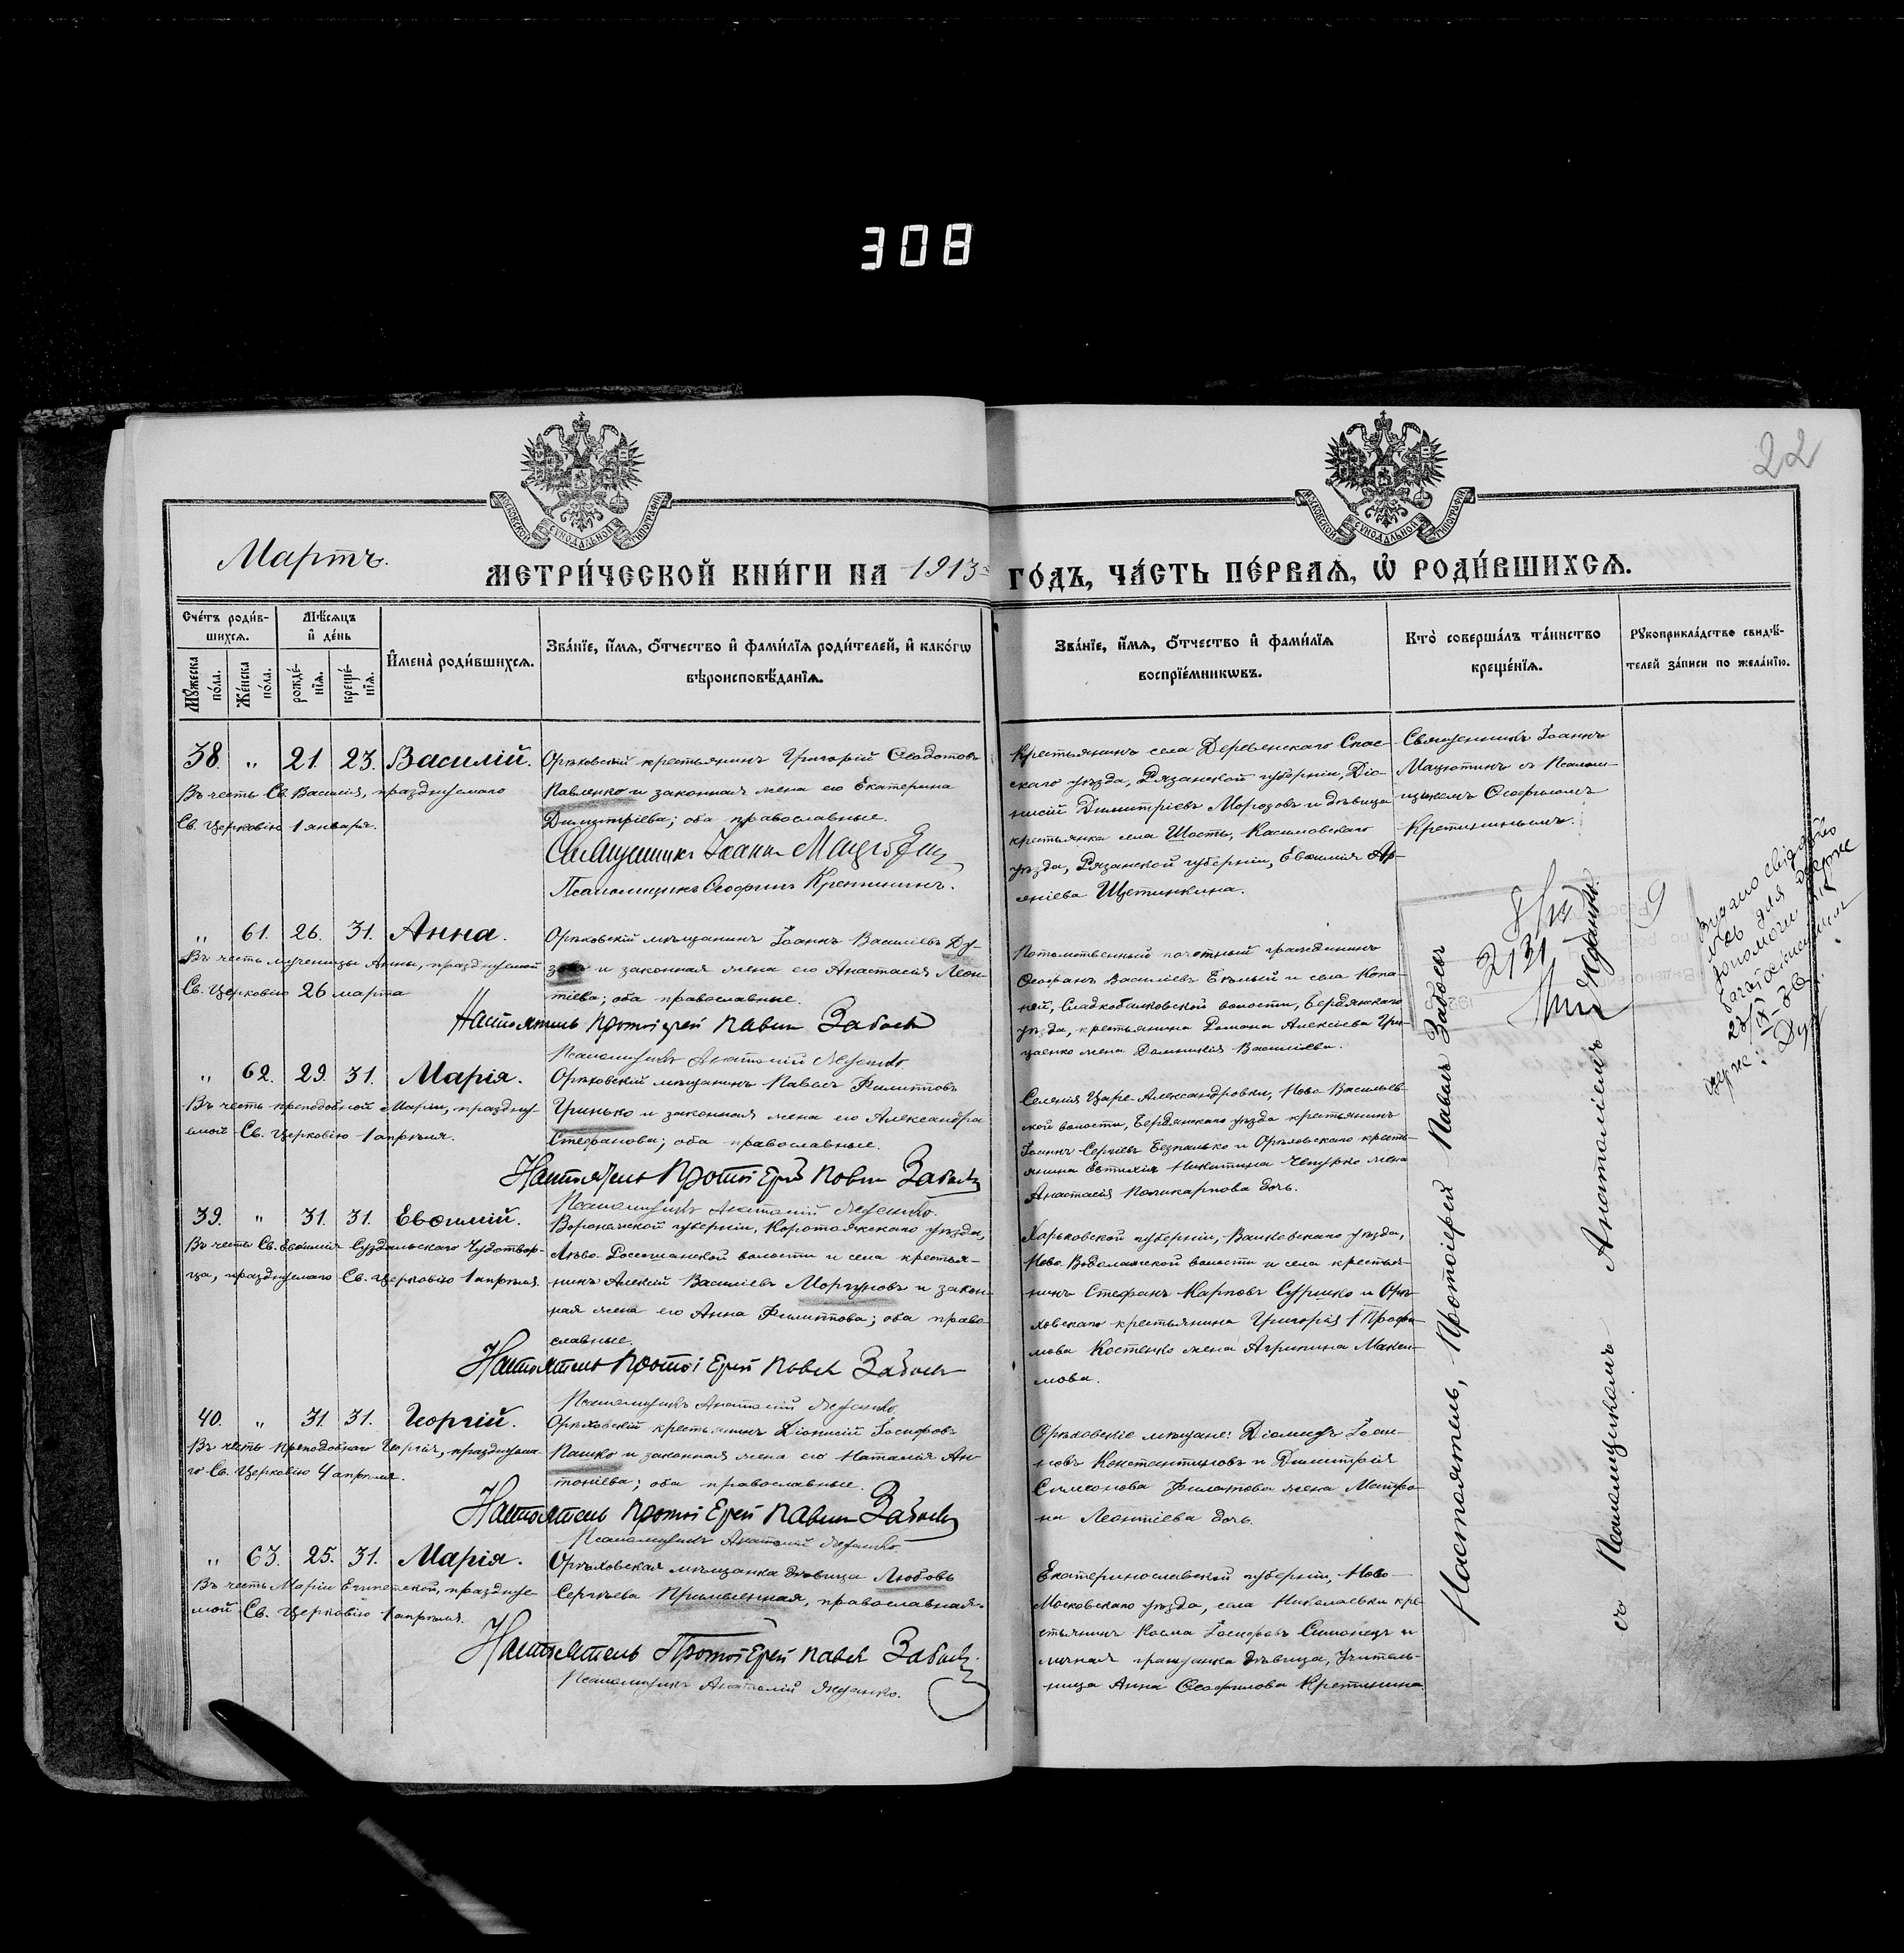 308
22
МОСКОВСКОЙ СѴНОДАЛЬНОЙ ТИПОГРАФІИ
МОСКОВСКОЙ СѴНОДАЛЬНОЙ ТИПОГРАФІИ
Мартъ.
МЕТРИ́ЧЕСКОЙ КНИ́ГИ НА 1913 ГО́ДЪ, ЧА́СТЬ ПЕ́РВАѦ, Ѡ҆ РОДИ́ВШИХСѦ.
Сче́тъ роди́в-
шихсѧ.
Мꙋ́жеска
по́ла.
Же́нска
по́ла.
Мѣ́сѧцъ
и҆ де́нь
рожде́-
нїѧ.
креще́-
нїѧ.
И҆мена̀ роди́вшихсѧ.
Зва́нїе, и҆́мѧ, ѻ҆́тчество и҆ фами́лїѧ роди́телей, и҆ како́гѡ
вѣроисповѣ́данїѧ.
Зва́нїе, и҆́мѧ, ѻ҆́тчество и҆ фами́лїѧ
воспрїе́мникѡвъ.
Кто̀ соверша́лъ та́инство
креще́нїѧ.
Рꙋкоприкла́дство свидѣ́-
телей за́писи по жела́нїю.
38. " 21. 23. Василій.
Въ честь Св. Василія, празднуемаго
Св. Церковію 1 января.
Орѣховскій крестьянинъ Григорій Ѳеодотовъ
Павленко и законная жена его Екатерина
Димитріева; оба православные.
Священникъ Іоаннъ Мацютинъ
Псаломщикъ Ѳеофилъ Кретининъ.
Крестьянинъ села Деревенскаго Спас-
скаго уѣзда, Рязанской губерніи, Діо-
нисій Димитріевъ Морозовъ и дѣвица
крестьянка села Шость, Касимовскаго
уѣзда, Рязанской губерніи, Евѳимія Ар-
сеніева Щетинкина.
Священникъ Іоаннъ
Мацютинъ съ Псалом-
щикомъ Ѳеофиломъ
Кретининымъ.
" 61. 26. 31. Анна.
Въ честь мученицы Анны, празднуемой
Св. Церковію 26 марта
Орѣховскій мѣщанинъ Іоаннъ Василіевъ
и законная жена его Анастасія Леон-
тіева; оба православные.
Настоятель Протоіерей Павелъ Забоевъ
Псаломщикъ Анатолій
Потомственный почетный гражданинъ
Ѳеофанъ Василіевъ и села Копа-
ней, Сладкобалковской волости, Бердянскаго
уѣзда, крестьянина Романа Алексіева Гри-
ценко жена Домникія Василіева.
" 62. 29. 31. Марія.
Въ честь преподобной Маріи, праздну-
емой Св. Церковію 1 апрѣля.
Орѣховскій мѣщанинъ Павелъ Филипповъ
Гринько и законная жена его Александра
Стефанова; оба православные.
Настоятель Протоіерей Павелъ Забоевъ
Псаломщикъ Анатолій
Селенія Царе-Александровки, Ново-Васильев-
ской волости, Бердянскаго уѣзда крестьянинъ
Іоаннъ Сергіевъ Безпалько и Орѣховскаго кресть-
янина Евтихія Никитина Чепурко жена
Анастасія Поликарпова дочь.
39. " 31. 31. Евѳимій.
Въ честь Св. Евѳимія Суздальскаго Чудотвор-
ца, празднуемаго Св. Церковію 1 апрѣля.
Воронежской губерніи, Коротоякскаго уѣзда,
Лѣво-Россошанской волости и села крестья-
нинъ Алексій Василіевъ Моргуновъ и закон-
ная жена его Анна Филиппова; оба право-
славные.
Настоятель Протоіерей Павелъ Забоевъ
Псаломщикъ Анатолій
Харьковской губерніи, Валковскаго уѣзда,
Ново-Водолажской волости и села крестья-
нинъ Стефанъ Карповъ и Орѣ-
ховскаго крестьянина Григорія Трофи-
мова Костенко жена Агрипина Макси-
мова.
40. " 31 31. Георгій.
Въ честь преподобнаго Георгія, празднуема-
го Св. Церковію 4 апрѣля.
Орѣховскій крестьянинъ Діонисій Іосифовъ
Пашко и законная жена его Наталія Ан-
тоніева; оба православные.
Настоятель Протоіерей Павелъ Забоевъ
Псаломщикъ Анатолій
Орѣховскіе мѣщане: Діомидъ Іоан-
новъ Константиновъ и Димитрія
Симеонова Филатова жена Матро-
на Леонтіева дочь.
" 63. 25. 31. Марія.
Въ честь Маріи Египетской, праздное-
мой Св. Церковію 1 апрѣля.
Орѣховская мѣщанка дѣвица Любовь
Сергѣева, православная.
Настоятель Протоіерей Павелъ Забоевъ
Псаломщикъ Анатолій
Екатеринославской губерніи, Ново-
Московскаго уѣзда, села Николаевки кре-
стьянинъ Косма Іосифовъ Симонецъ и
личная гражданка дѣвица, учитель-
ница Анна Ѳеофилова Кретинина
Настоятель, Протоіерей Павелъ Забоевъ
съ Псаломщикомъ Анатоліемъ
2131